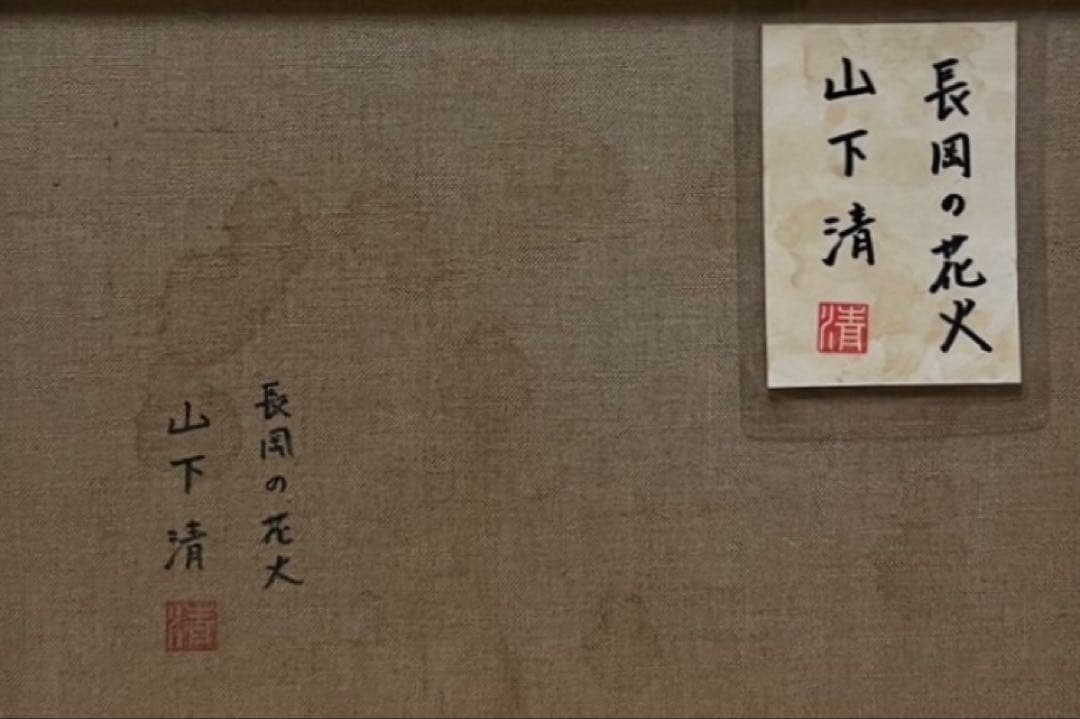 長岡の花火
山下清
清
長岡の花火
山下清
清